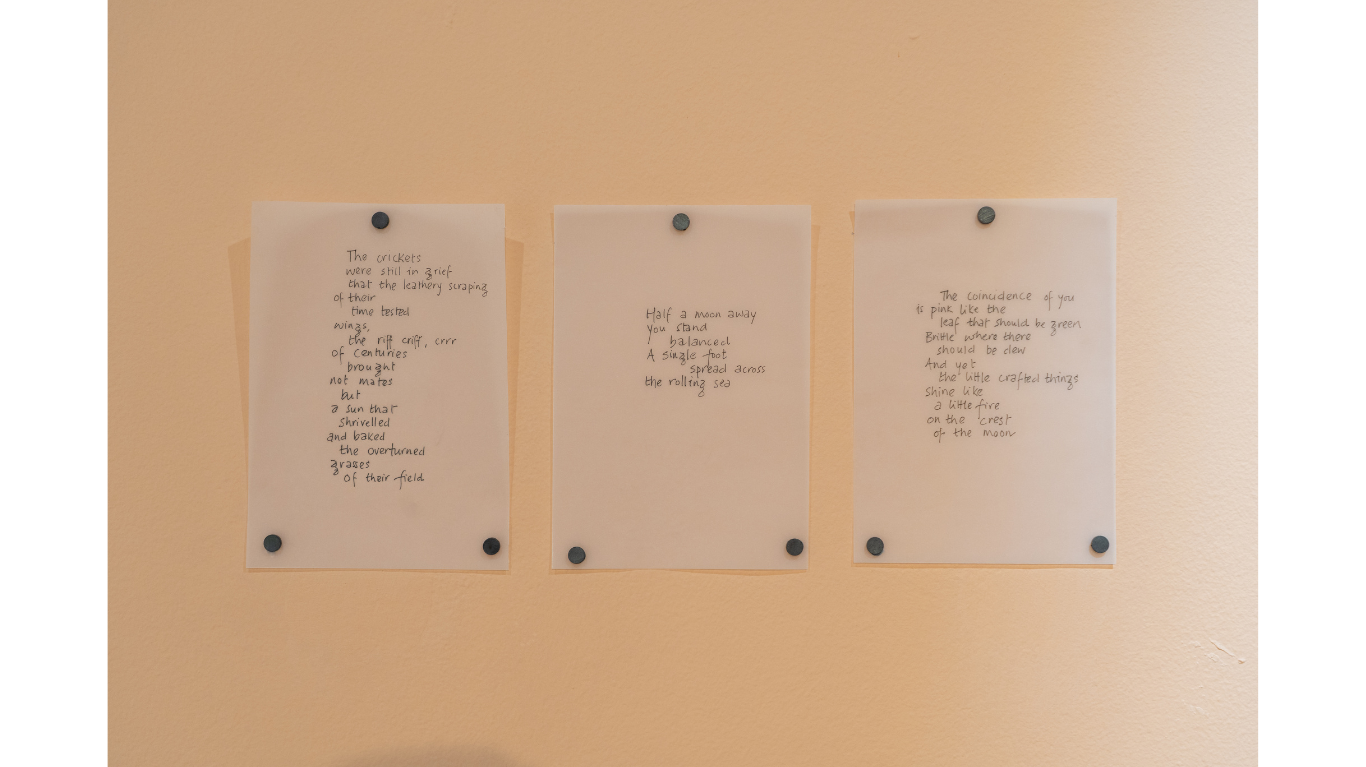 The crickets
were still in grief
that the leathery scraping
of their
time tested
wings,
the riff criff, crrr
of centuries
brought
not mates
but
a sun that
shrivelled
and baked
the overturned
grases
of their field
Half a moon away
you stand
balanced
A single foot
spread across
the rolling sea
The coincidence of you
is pink like the
leaf that should be green
Brittle where there
should be dew
And yet
the little crafted things
shine like
a little fire
on the crest
of the moon